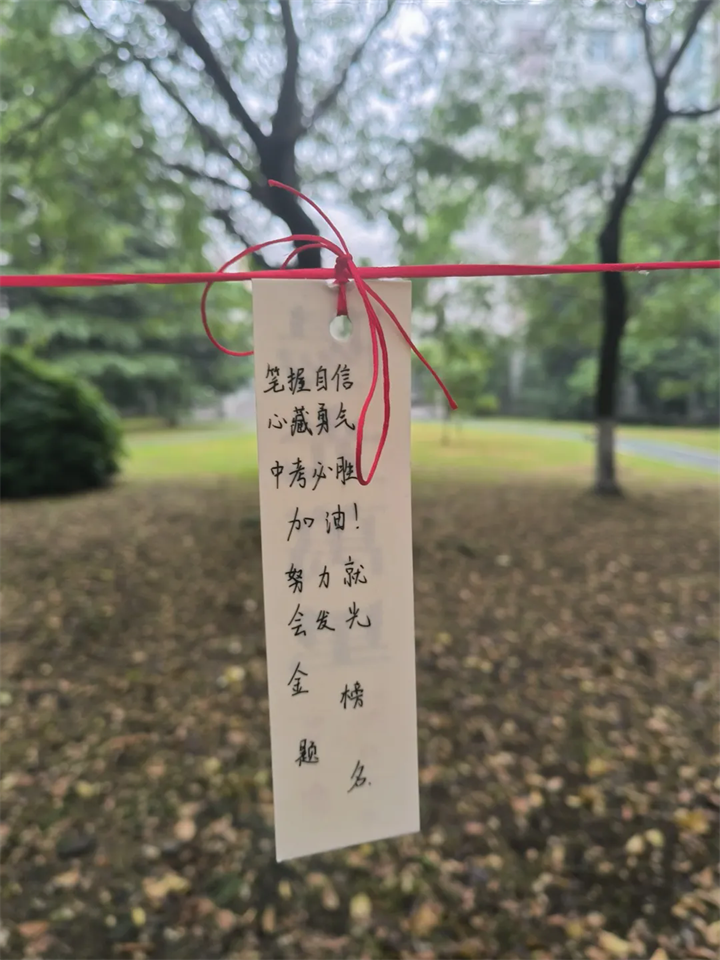 笔握自信
心藏勇气
中考必胜
加油!
努力就
会发光
金榜
题名